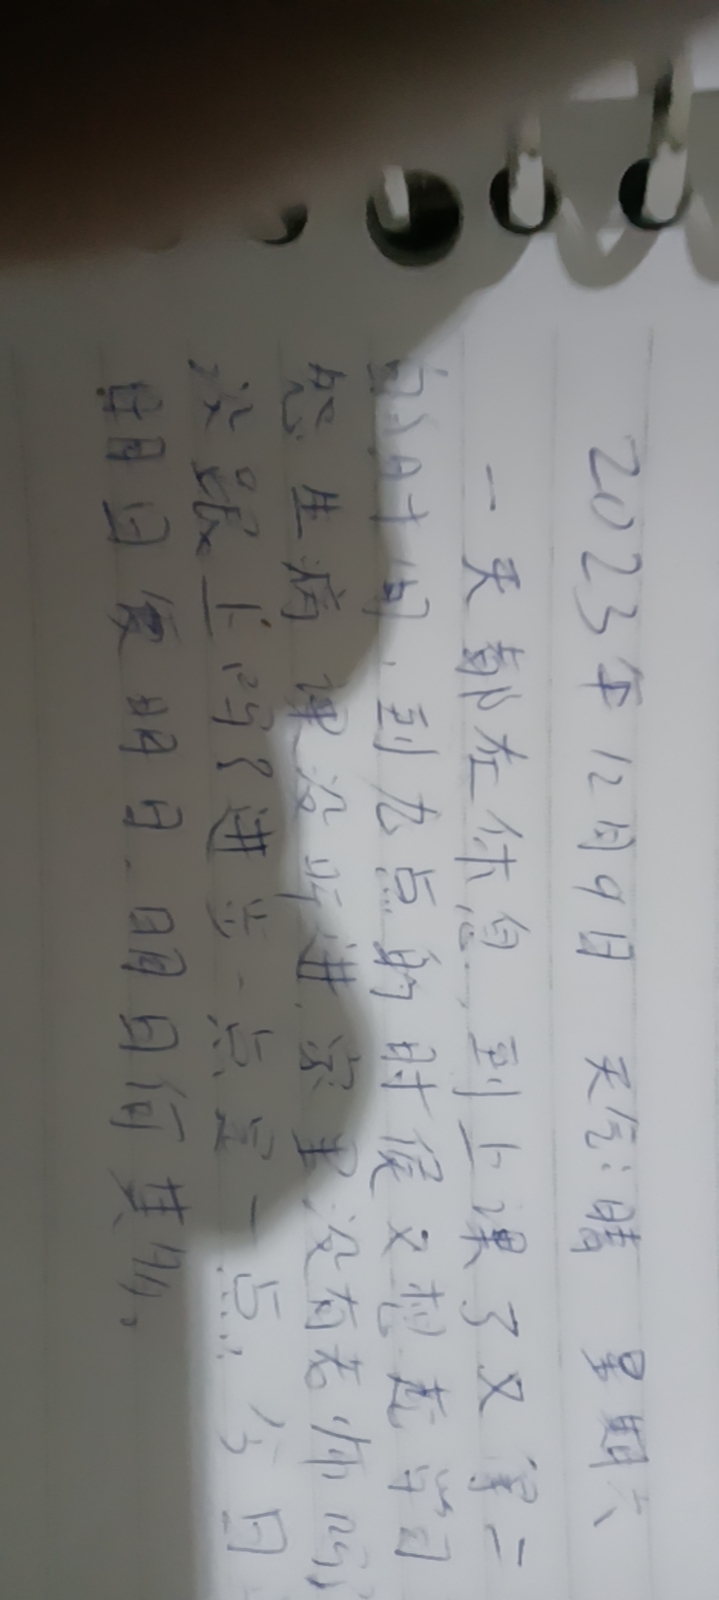 2023年12月9日 天气:晴 星期六
一天都在休息,到上课了又 二
时间,到九点的时候又想起学习
生病 课没听进,家里没有老师吗?
没跟上吗?进步一点是一点。今日
明日复明日,明日何其多。